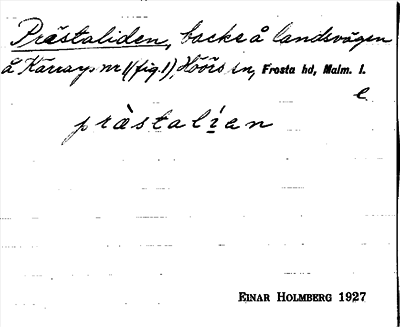 Prästaliden, backe å landsvägen
å Kärray. nr 1 (fig. 1), Höörs sn, Frosta hd, Malm. l.
e
prästalien
EINAR HOLMBERG 1927